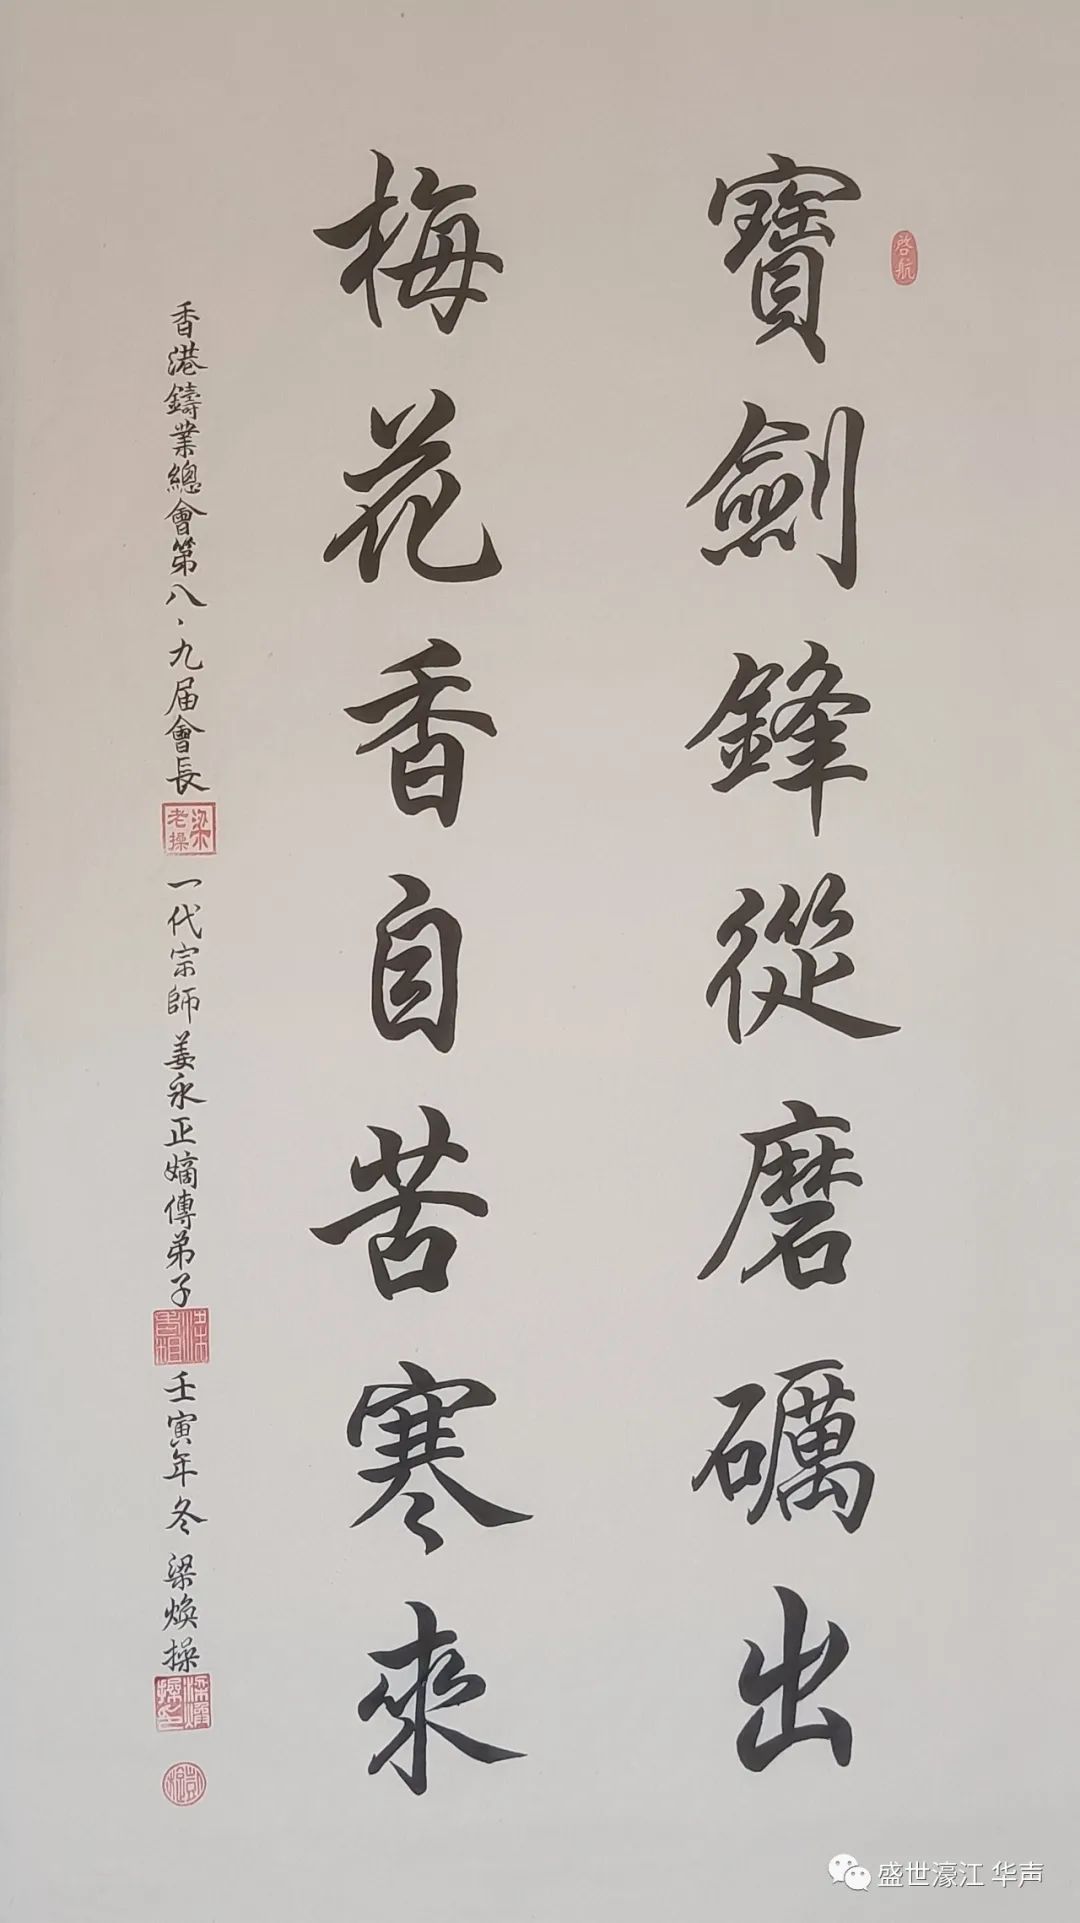 啓航
寶劍鋒從磨礪出
梅花香自苦寒來
香港鑄業總會第八、九届會長
梁老操
一代宗師姜永正嫡傳弟子
壬寅年冬 梁焕操
盛世濠江 华声